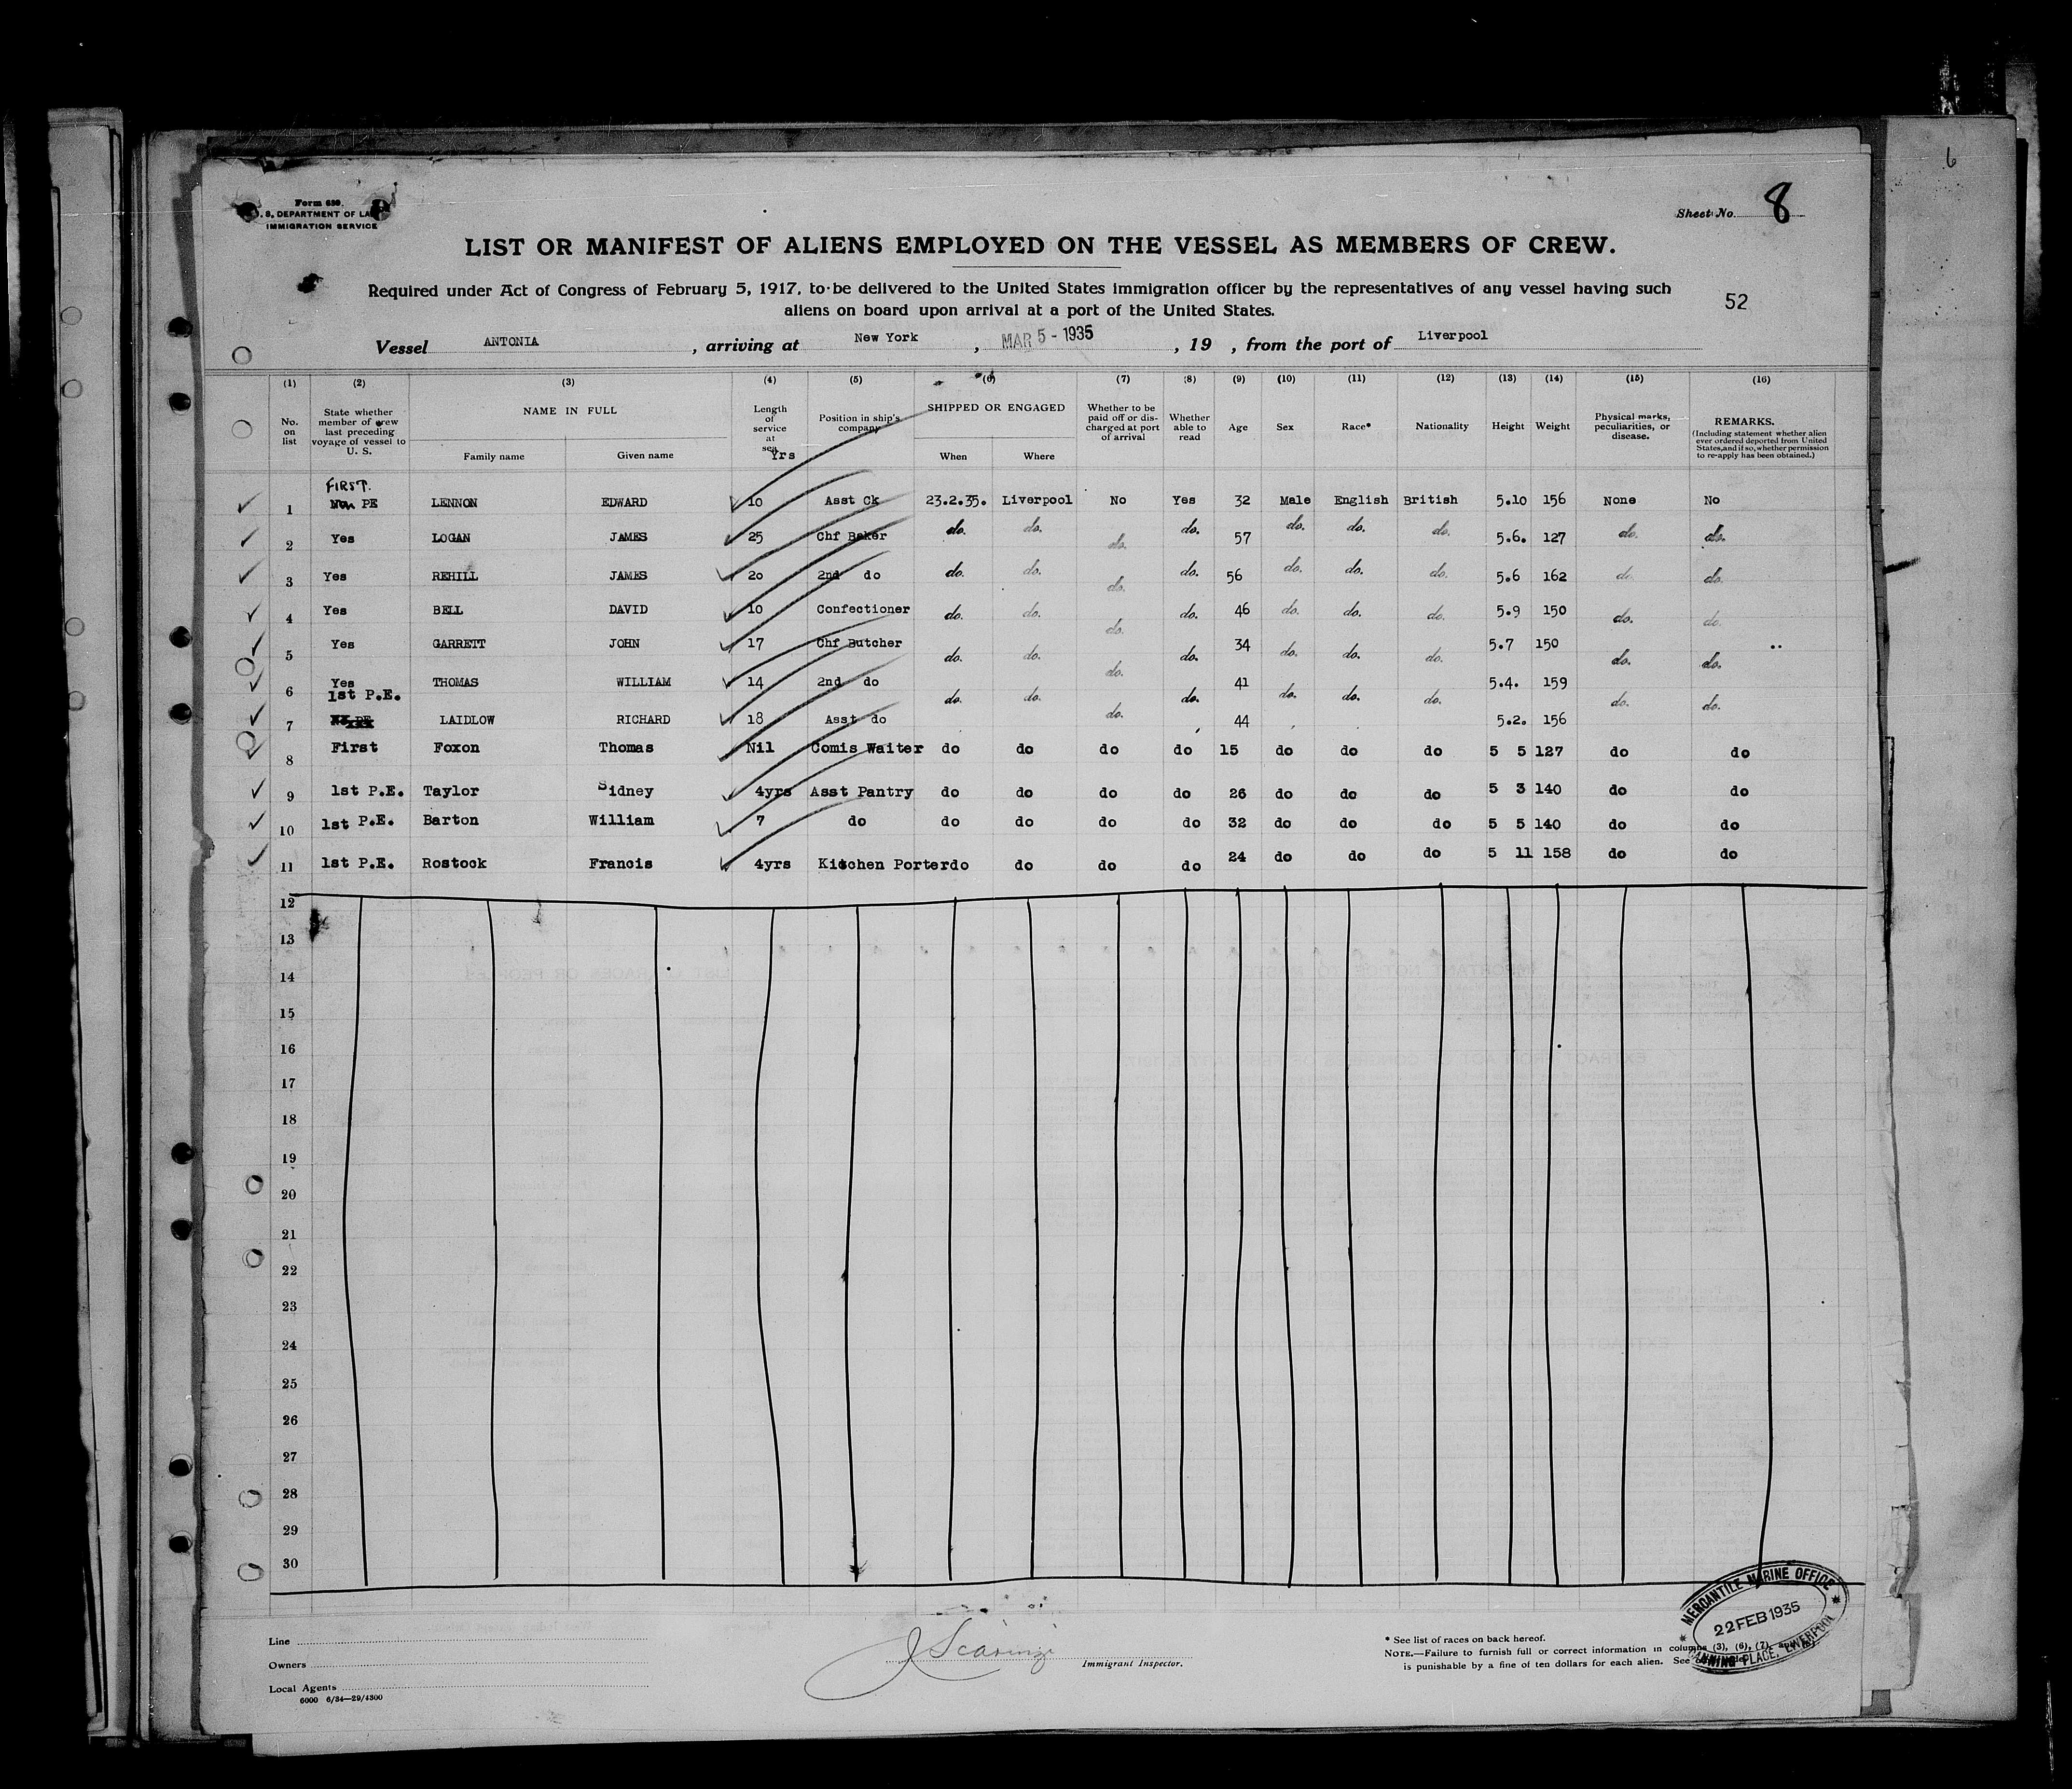 6
Form 689.
U. S. DEPARTMENT OF LABOR
IMMIGRATION SERVICE
Sheet No. 8
LIST OR MANIFEST OF ALIENS EMPLOYED ON THE VESSEL AS MEMBERS OF CREW.
Required under Act of Congress of February 5, 1917, to be delivered to the United States immigration officer by the representatives of any vessel having such
aliens on board upon arrival at a port of the United States.
52
Vessel ANTONIA, arriving at New York, MAR 5 - 1935, 19 , from the port of Liverpool
(1) (2) (3) (4) (5) (6) (7) (8) (9) (10) (11) (12) (13) (14) (15) (16)
No. on list
State whether member of crew last preceding voyage of vessel to U. S.
NAME IN FULL
Family name Given name
Length of service at sea Yrs
Position in ship's company
SHIPPED OR ENGAGED
When Where
Whether to be paid off or discharged at port of arrival
Whether able to read
Age Sex Race* Nationality Height Weight
Physical marks, peculiarities, or disease.
REMARKS.
(Including statement whether alien ever ordered deported from United States, and if so, whether permission to re-apply has been obtained.)
FIRST.
1 PE LENNON EDWARD 10 Asst Ck 23.2.35. Liverpool No Yes 32 Male English British 5.10 156 None No
2 Yes LOGAN JAMES 25 Chf Baker do. do. do. do. 57 do. do. do. 5.6. 127 do. do.
3 Yes REHILL JAMES 20 2nd do do. do. do. do. 56 do. do. do. 5.6 162 do. do.
4 Yes BELL DAVID 10 Confectioner do. do. do. do. 46 do. do. do. 5.9 150 do. do.
5 Yes GARRETT JOHN 17 Chf Butcher do. do. do. do. 34 do. do. do. 5.7 150 do. do.
6 Yes THOMAS WILLIAM 14 2nd do do. do. do. do. 41 do. do. do. 5.4. 159 do. do.
1st P.E.
7 LAIDLOW RICHARD 18 Asst do do. 44 5.2. 156
8 First Foxon Thomas Nil Comis Waiter do do do do 15 do do do 5 5 127 do do
9 1st P.E. Taylor Sidney 4yrs Asst Pantry do do do do 26 do do do 5 3 140 do do
10 1st P.E. Barton William 7 do do do do do 32 do do do 5 5 140 do do
11 1st P.E. Rostock Francis 4yrs Kitchen Porter do do do do 24 do do do 5 11 158 do do
12
13
14
15
16
17
18
19
20
21
22
23
24
25
26
27
28
29
30
Line
Owners
Local Agents
6000 6/34—29/4300
J Scaringi
Immigrant Inspector.
* See list of races on back hereof.
NOTE.—Failure to furnish full or correct information in columns (3), (6), (7),
is punishable by a fine of ten dollars for each alien. See
MERCANTILE MARINE OFFICE
22 FEB 1935
CANNING PLACE, LIVERPOOL